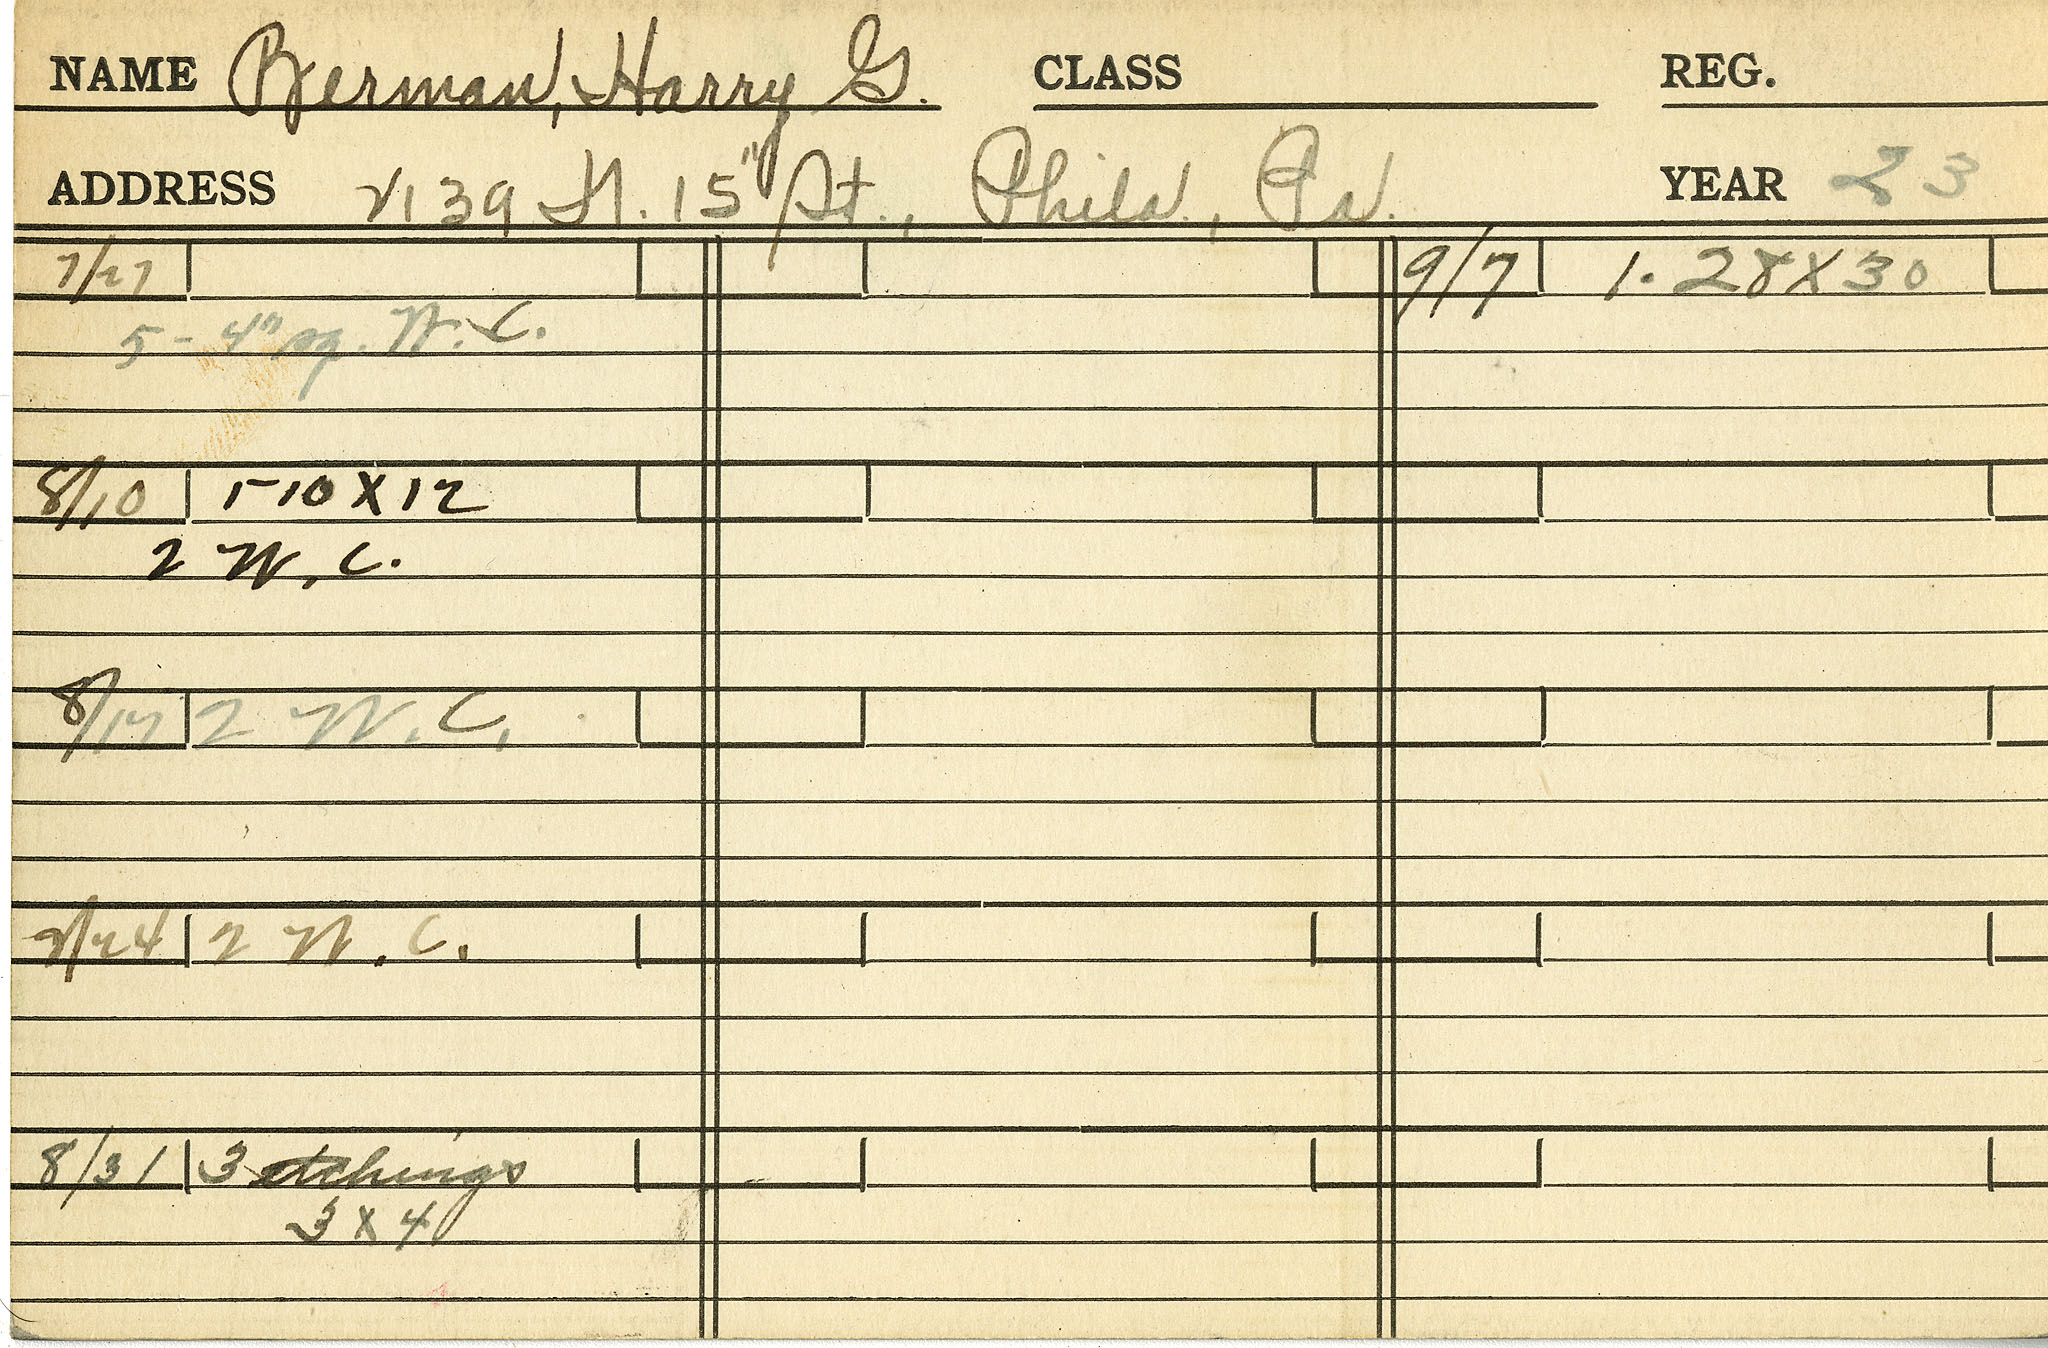 NAME Berman, Harry G. CLASS REG.
ADDRESS 2139 N. 15" St., Phila., Pa. YEAR 23
7/27
5 - 4" sq. W. C.
8/10 1-10 X 12
2 W. C.
8/17 2 W. C.
8/24 2 W. C.
8/31 3 etchings
3 x 4
9/7 1. 28 X 30